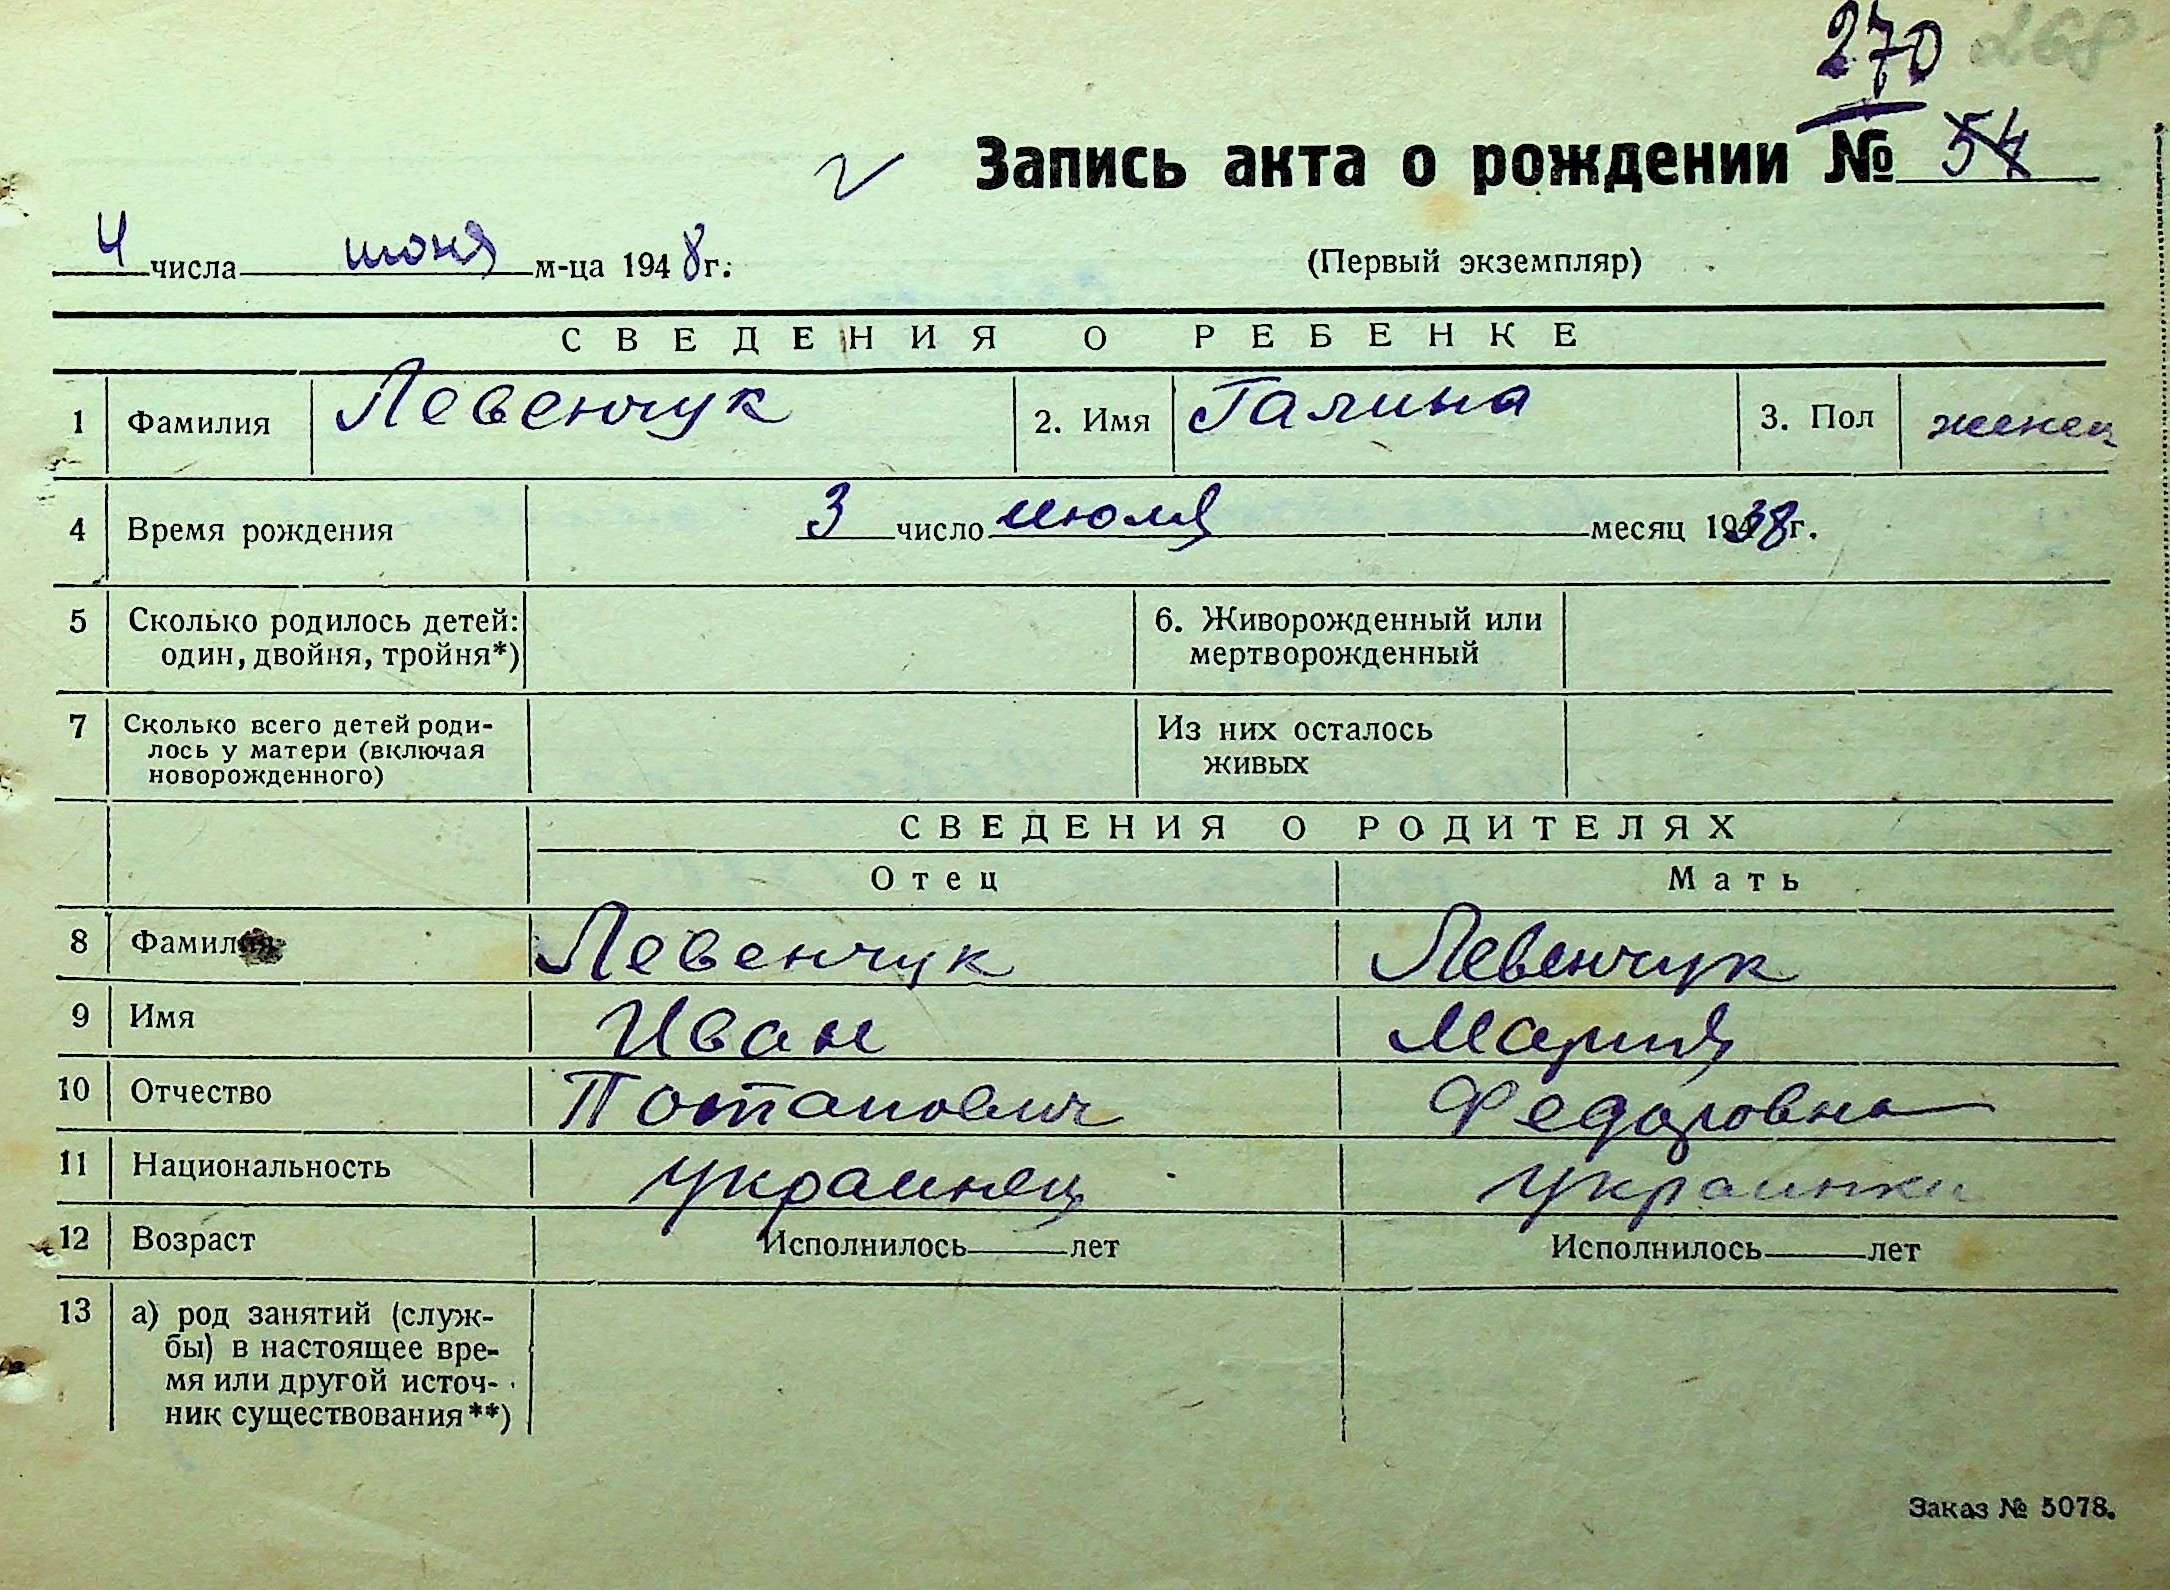 270 268
Запись акта о рождении № 54
4 числа июня м-ца 1948 г.
(Первый экземпляр)
СВЕДЕНИЯ О РЕБЕНКЕ
1 Фамилия Левенчук 2. Имя Галина 3. Пол женск
4 Время рождения 3 число июля месяц 1938 г.
5 Сколько родилось детей: 6. Живорожденный или
один, двойня, тройня*) мертворожденный
7 Сколько всего детей роди- Из них осталось
лось у матери (включая живых
новорожденного)
СВЕДЕНИЯ О РОДИТЕЛЯХ
Отец Мать
8 Фамилия Левенчук Левенчук
9 Имя Иван Мария
10 Отчество Потапович Федоровна
11 Национальность украинец украинка
12 Возраст Исполнилось лет Исполнилось лет
13 а) род занятий (служ-
бы) в настоящее вре-
мя или другой источ-
ник существования**)
Заказ № 5078.